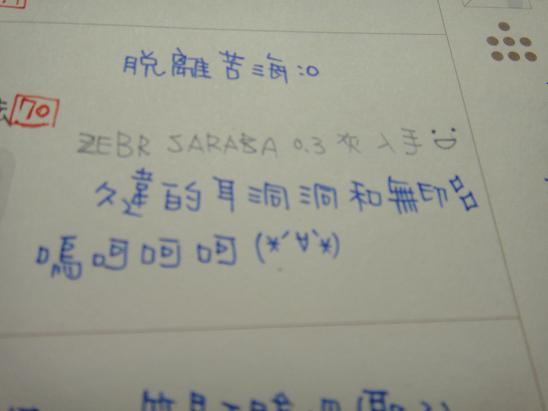 脫離苦海:o
70
ZEBR SARASA 0.3 灰 入手:D
久違的耳洞洞和無印品
嗚呵呵呵(*´∀`*)